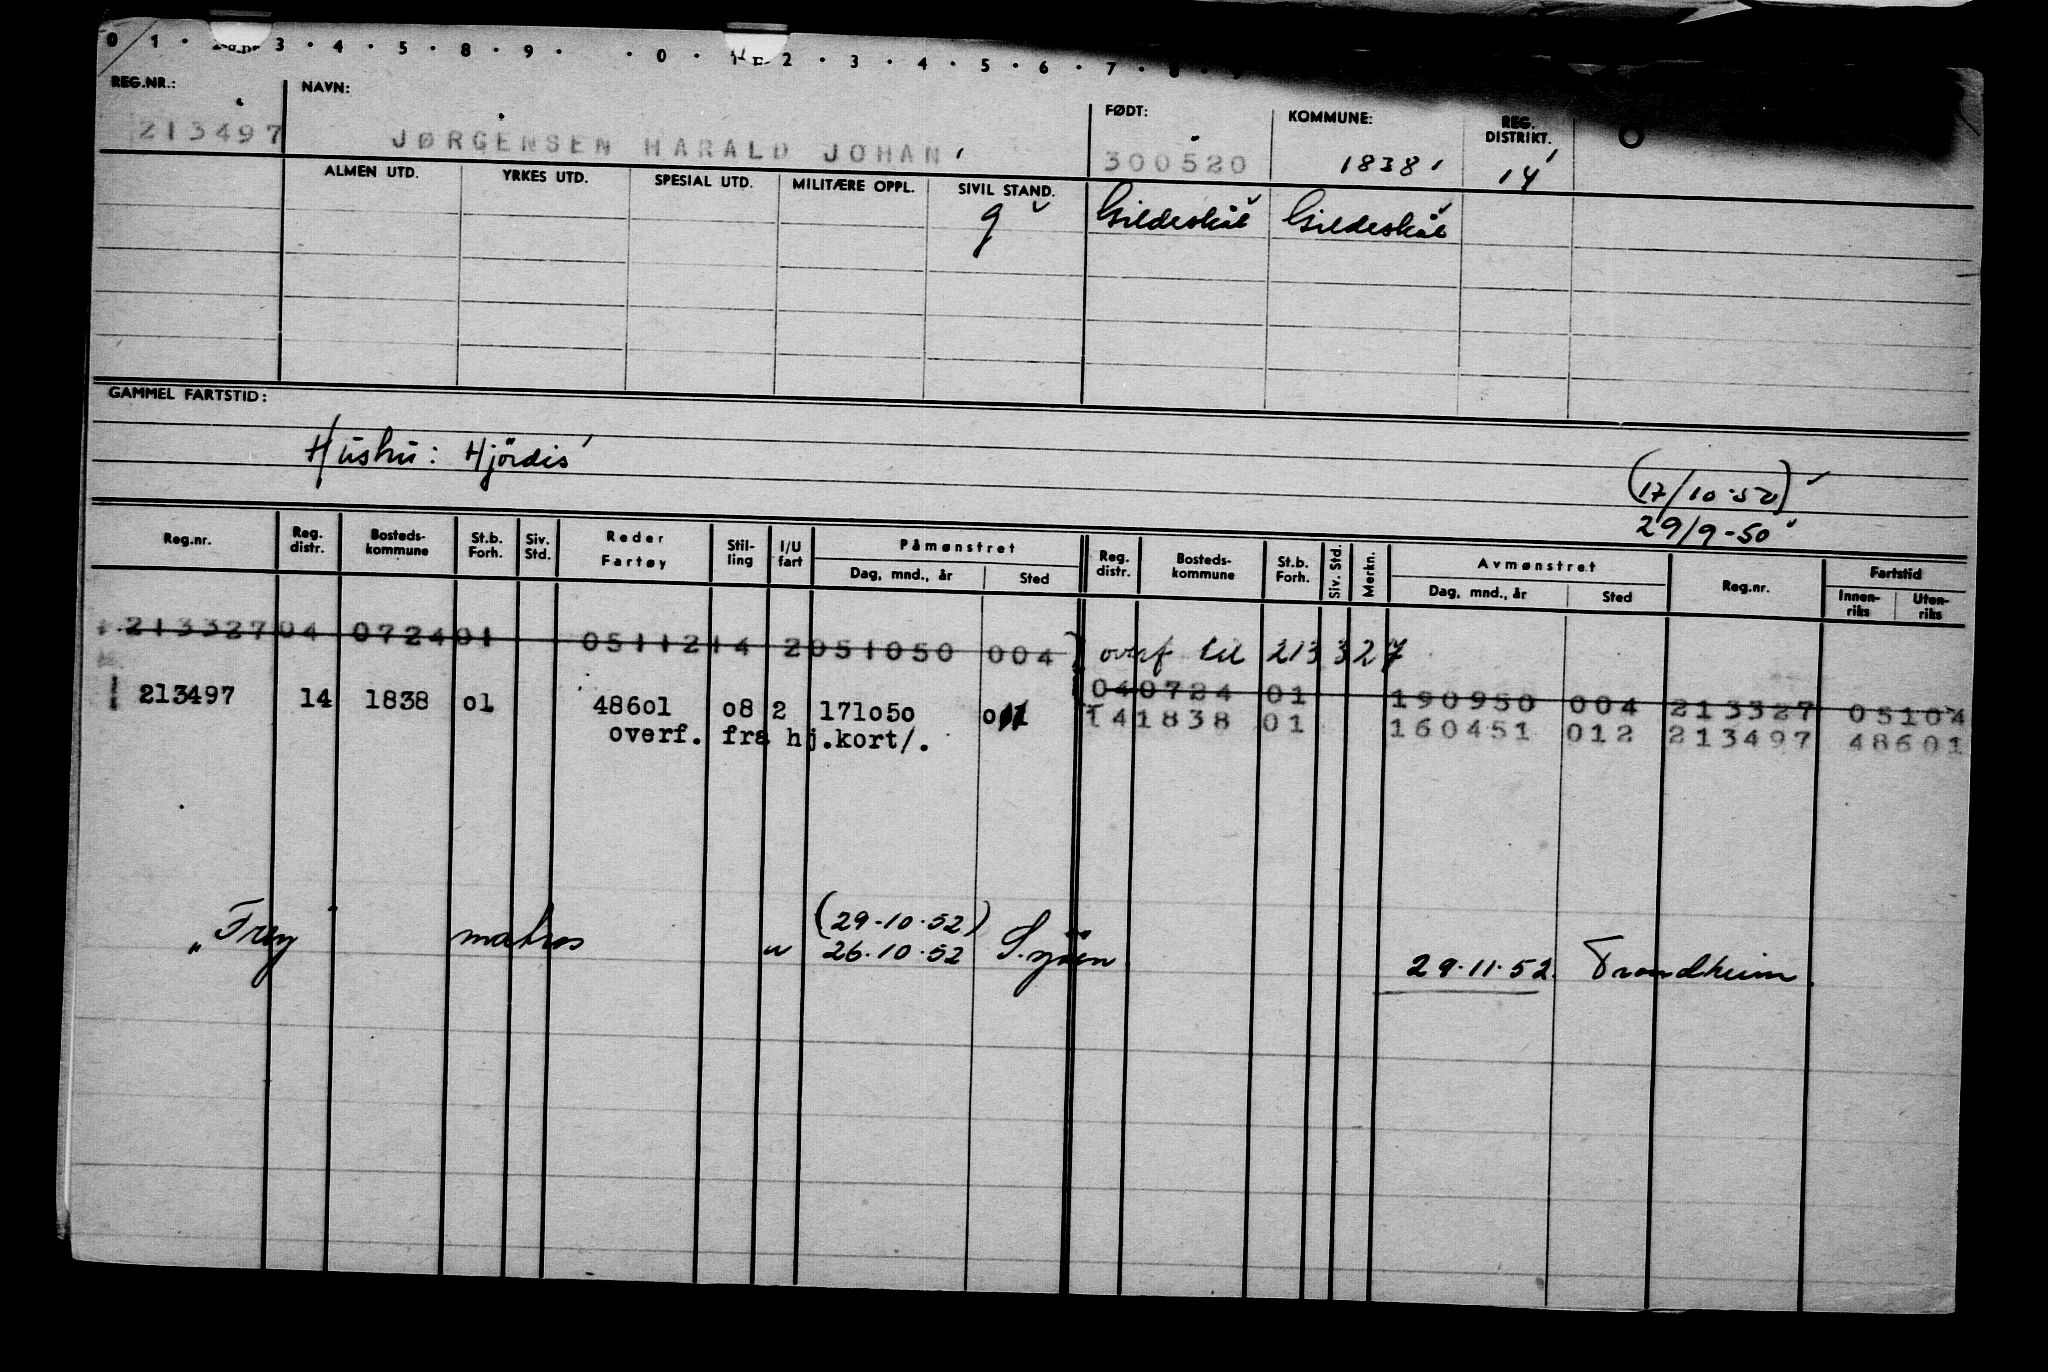 0 1 · 3 · 4 · 5 · 8 · 9 · · 0 · 2 · 3 · 4 · 5 · 6 · 7 · 8 · 9
REG.NR.: NAVN: FØDT: KOMMUNE: REG. DISTRIKT.
213497 JØRGENSEN HARALD JOHAN 300520 1838 14
ALMEN UTD. YRKES UTD. SPESIAL UTD. MILITÆRE OPPL. SIVIL STAND.
g Gildeskål Gildeskål
GAMMEL FARTSTID:
Hushu: Hjördis
(17/10-50)
29/9-50
Reg.nr. Reg. distr. Bosteds-kommune St.b. Forh. Siv. Std. Reder Fartøy Stil-ling I/U fart Påmønstret Dag, mnd., år Sted Reg. distr. Bosteds-kommune St.b. Forh. Siv. Std. Merkn. Avmønstret Dag, mnd., år Sted Reg.nr. Fartstid Innen-riks Uten-riks
213327 04 0724 01 05112 14 2 051050 004 overf til 213 327
040724 01 190950 004 213327 05104
213497 14 1838 01 48601 08 2 171050 141838 01 160451 012 213497 48601
overf. fra hj.kort/.
(29-10-52)
"Frey matros u 26.10.52 S.sjøen 29.11.52. Trondheim.